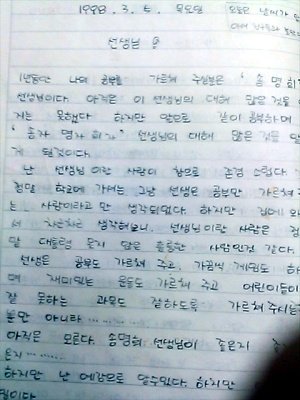 1998. 3. 5. 목요일
오늘은 날씨가
선생님
1년동안 나의 공부를 가르쳐 주실분은 '송 명희'
선생님이다. 아직은 이 선생님의 대해 많은 것을
지는 못했다. 하지만 앞으로 같이 공부하며
"송자 명자 희자" 선생님의 대해 많은 것을 알
게 될것이다.
난 선생님이란 사람이 참으로 존경 스럽다.
정말 학교에 가서는 그냥 선생은 공부만 가르쳐주
는 사람이라고만 생각되었다. 하지만 집에 와
서 차근차근 생각해보니. 선생님이란 사람은 정
말 대통령 못지 않은 훌륭한 사람인것 같다.
선생은 공부도 가르쳐 주고, 가끔씩 게임도 하
며 재미있는 운동도 가르쳐 주고 어린이들이
잘 못하는 과목도 잘하도록 가르쳐 주시는
뿐만 아니라 ………
아직은 모른다. 송명희 선생님이 좋은지
은지………
하지만 난 예감으로 알수있다. 하지만
것이다.